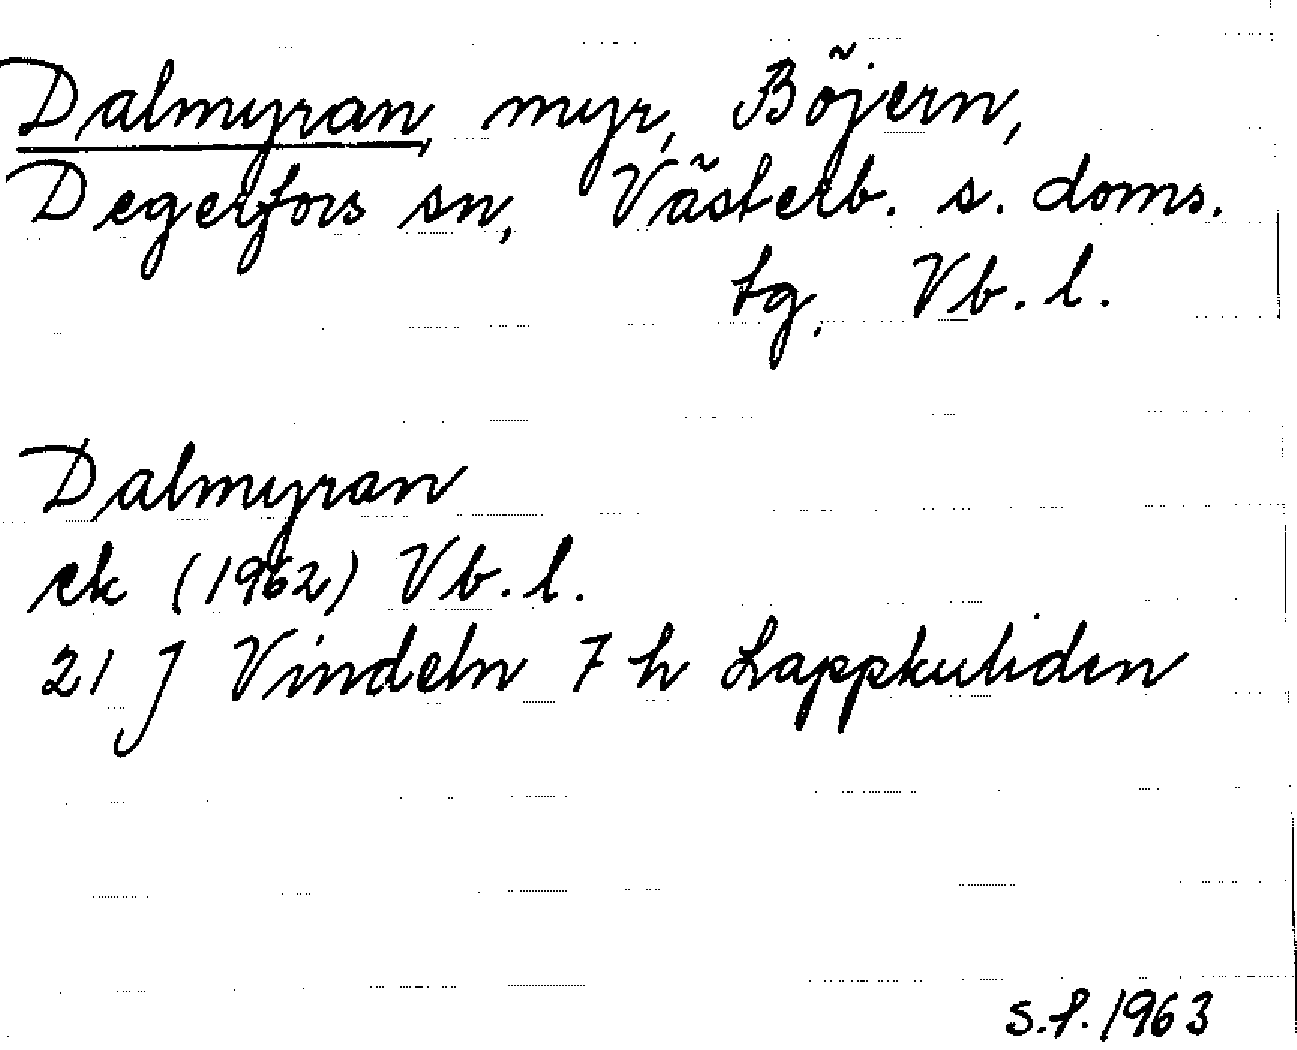 Dalmyran, myr, Böjern,
Degerfors sn, Västerb. s. doms.
tg, Vb. l.
Dalmyran
ek (1962) Vb. l.
21 J Vindeln 7 h Lappkuliden
S.P. 1963